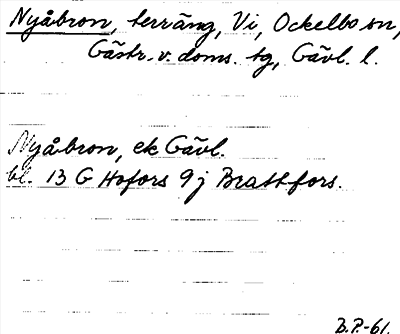 Nyåbron, terräng, Vi, Ockelbo sn,
Gästr. v. doms. tg, Gävl. l.
Nyåbron, ek Gävl.
bl. 13 G Hofors 9 j Brattfors.
B.P.-61.